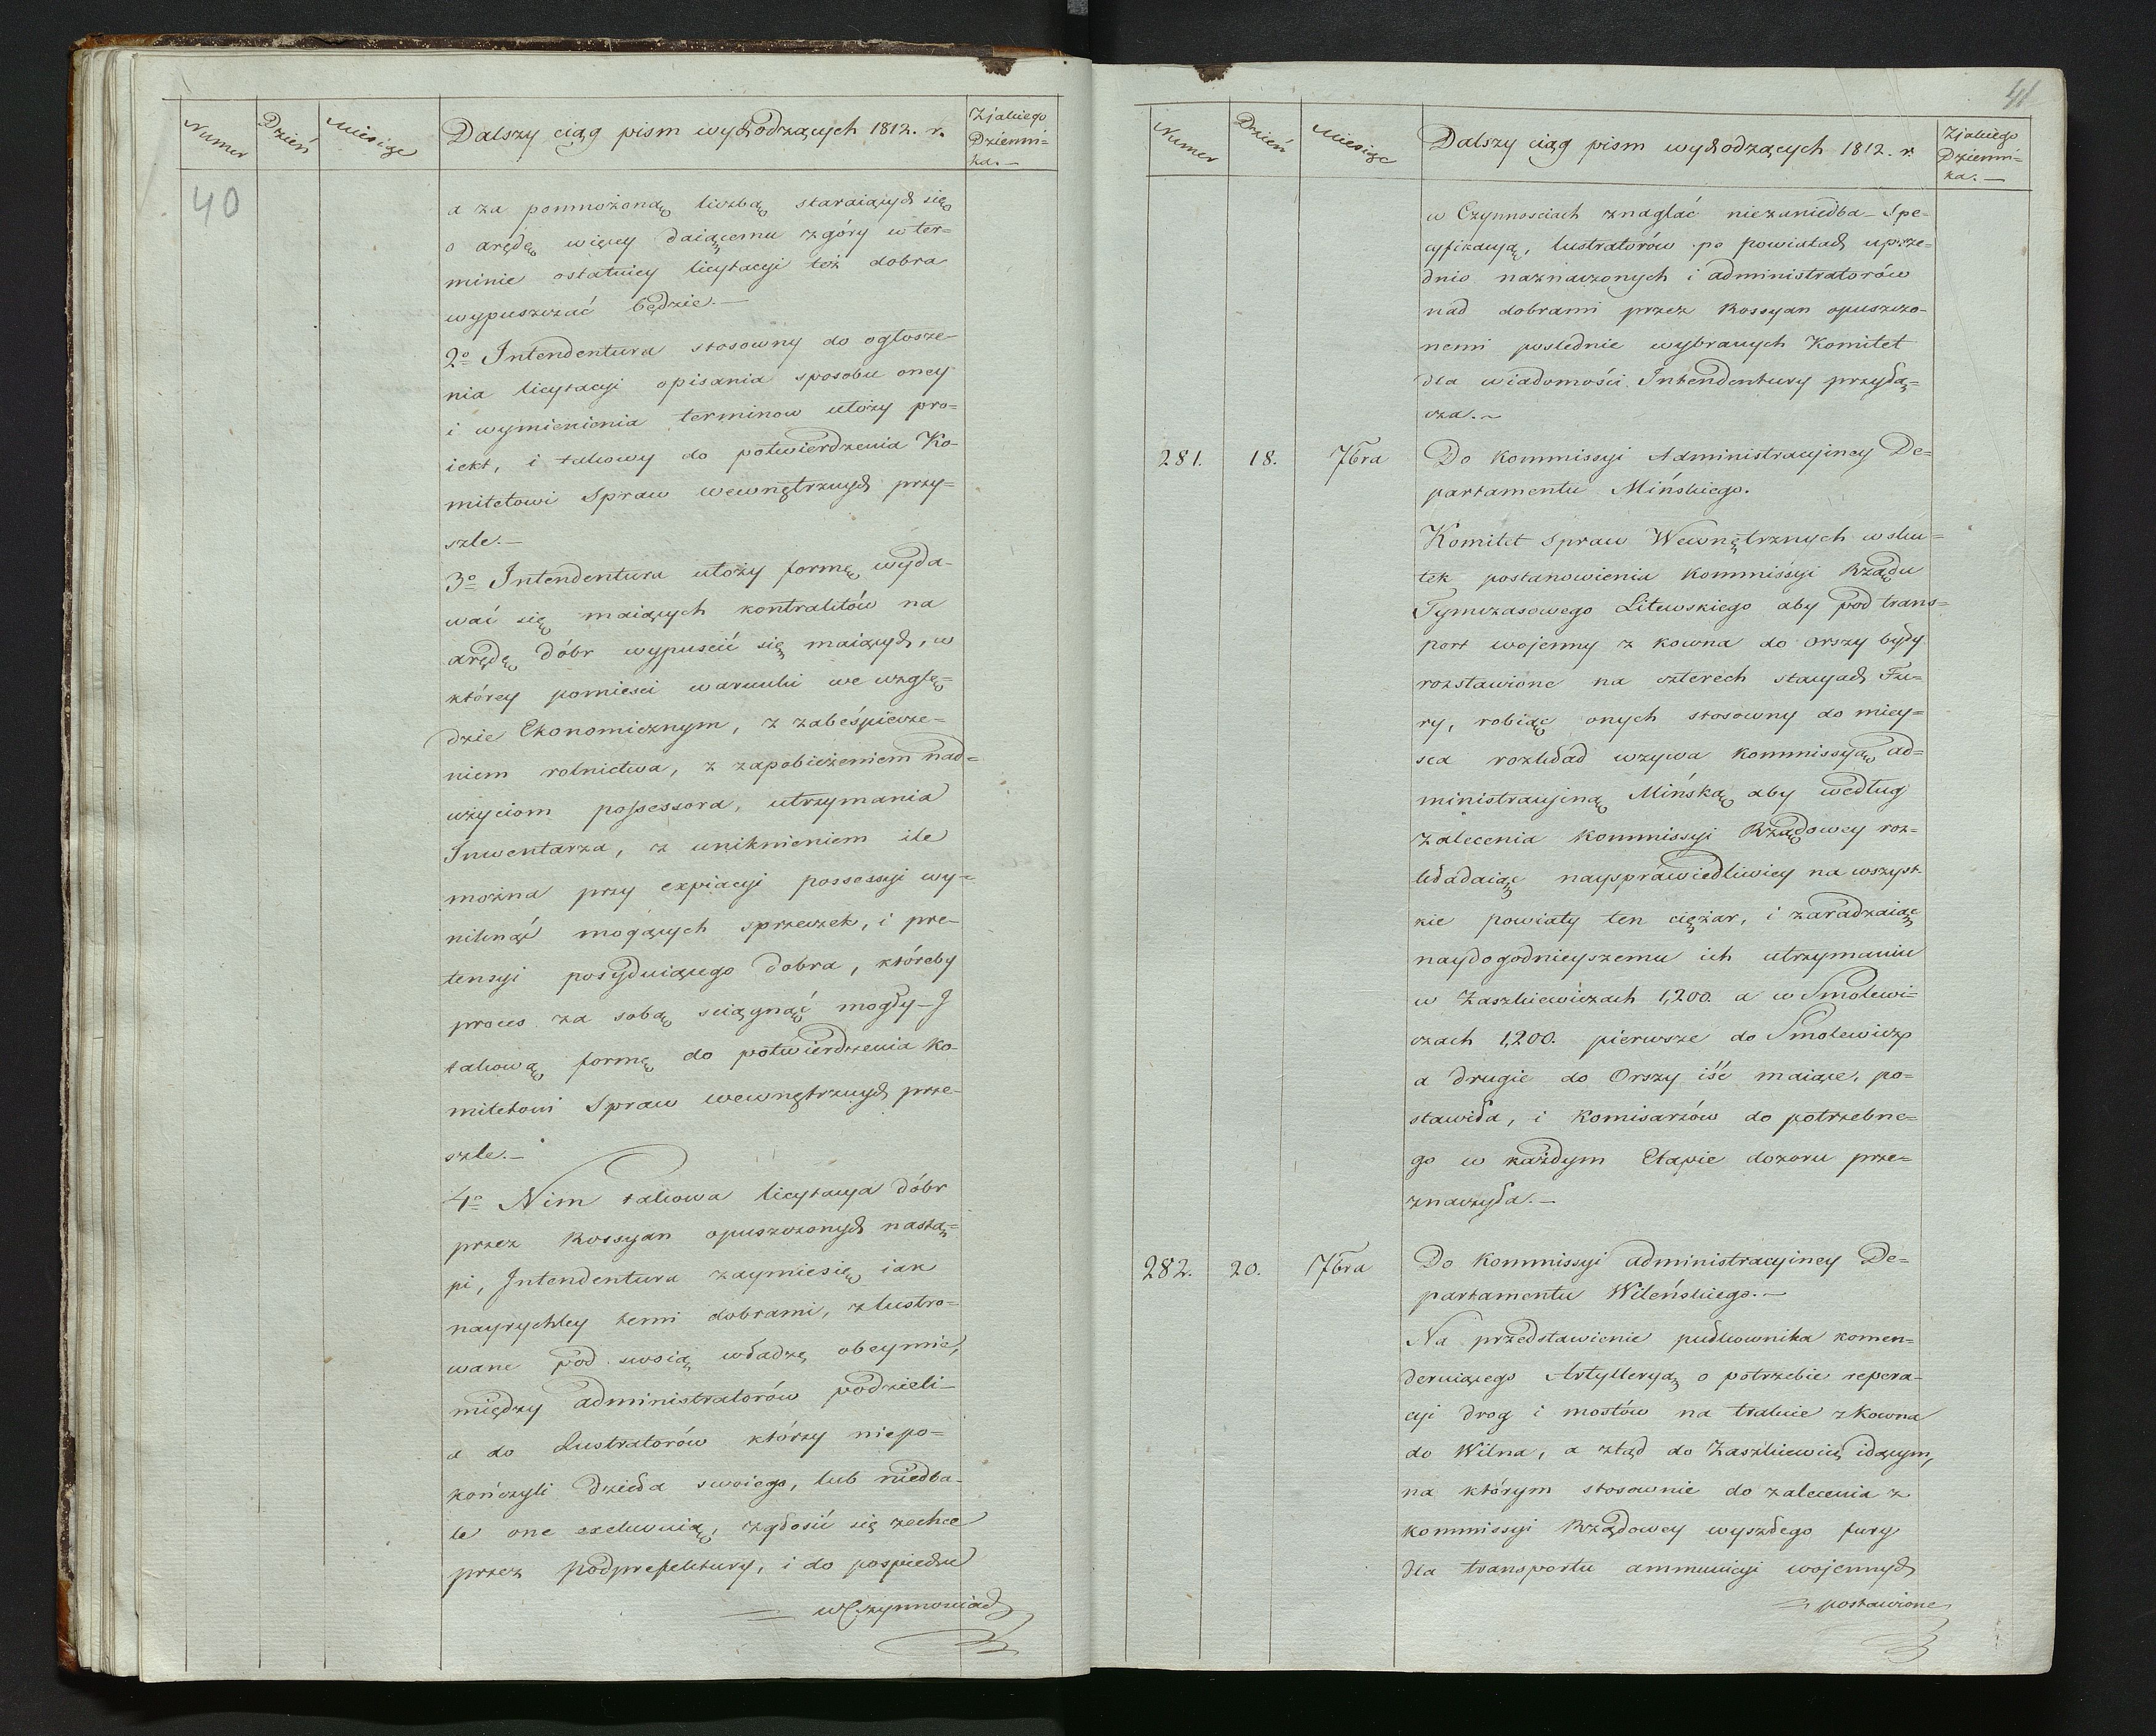 Numer
Dzień
Miesiąc
Dalszy ciąg pism wychodzących 1812. r.
Z jakiego
Dzienni=
ka.—
40
a za pomnożoną liczbą staraiących się
o arędę więcey daiącemu z góry w ter=
minie ostatniey licytacyi też dobra
wypuszczać będzie.—
2o Intendentura stosowny do ogłosze-
nia licytacyi opisania sposobu oney
i wymienienia terminow ułoży pro=
iekt, i takowy do potwierdzenia Ko-
mitetowi Spraw wewnętrznych przy=
szle.—
3o Intendentura ułoży formę wyda-
wać się maiących kontraktów na
arędę dóbr wypuścić się maiących, w
którey pomieści warunki we wzglę=
dzie Ekonomicznym, z zabeśpiecze=
niem rolnictwa, z zapobieżeniem nad=
użyciom possessora, utrzymania
Inwentarza, z uniknieniem ile
można przy expiacyi possessyi wy=
niknąć mogących sprzeczek, i pre-
tensyi posyduiącego dobra, któreby
proces za sobą sciągnąć mogły—J
takową formę do potwierdzenia Ko-
mitetowi Spraw wewnętrznych prze-
szle.—
4o Nim takowa licytacya dóbr
przez Rossyan opuszczonych nastą=
pi, Intendentura zaymie się iak
nayrychley temi dobrami, zlustro=
wane pod swoią władzę obeymie,
między administratorów podzieli—
a do Lustratorów którzy niepo=
kończyli dzieła swoiego, lub niedba-
le one exekwuią, zgłosić się zechce
przez Podprefektury, i do pospiechu
= w Czynnościach
41
Numer
Dzień
Miesiąc
Dalszy ciąg pism wychodzących 1812. r.
Z jakiego
Dzienni=
ka.—
w Czynnosciach znaglać niezaniedba—Spe=
cyfikacyą, lustratorów po powiatach uprze=
dnio naznaczonych i administratorów
nad dobrami przez Rossyan opuszczo-
nemi poslednie wybranych Komitet
dla wiadomości Intendentury przyłą=
cza.~
281. 18. 7bra Do Kommissyi Administracyiney De=
partamentu Mińskiego.
Komitet Spraw Wewnętrznych w sku=
tek postanowienia Kommissyi Rządu
Tymczasowego Litewskiego aby pod trans=
port wojenny z Kowna do Orszy były
rozstawione na czterech stacyach Fu=
ry, robiąc onych stosowny do miey=
sca rozkład wzywa Kommissyą ad=
ministracyiną Mińską aby według
zalecenia Kommissyi Rządowey roz=
kładaiąc nayspráwiedliwiey na wszyst-
kie powiaty ten ciężar, i zaradzaiąc
naydogodnieyszemu ich utrzymaniu
w Zaszkiewiczach 1,200. a w Smolewi=
czach 1,200. pierwsze do Smolewicz
a drugie do Orszy iść maiące, po=
stawiła, i Komisarzów do potrzebne=
go w każdym Etapie dozoru prze=
znaczyła.—
282. 20. 7bra Do Kommissyi administracyiney De=
partamentu Wileńskiego.—
Na przedstawienie pułkownika komen=
deruiącego Artylleryą o potrzebie repera-
cyi drog i mostów na trakcie z Kowna
do Wilna, a ztąd do Zaszkiewicz idącym,
na którym stosownie do zalecenia z
Kommissyi Rządowey wyszłego fury
dla transportu ammunicyi wojennych
= postawione